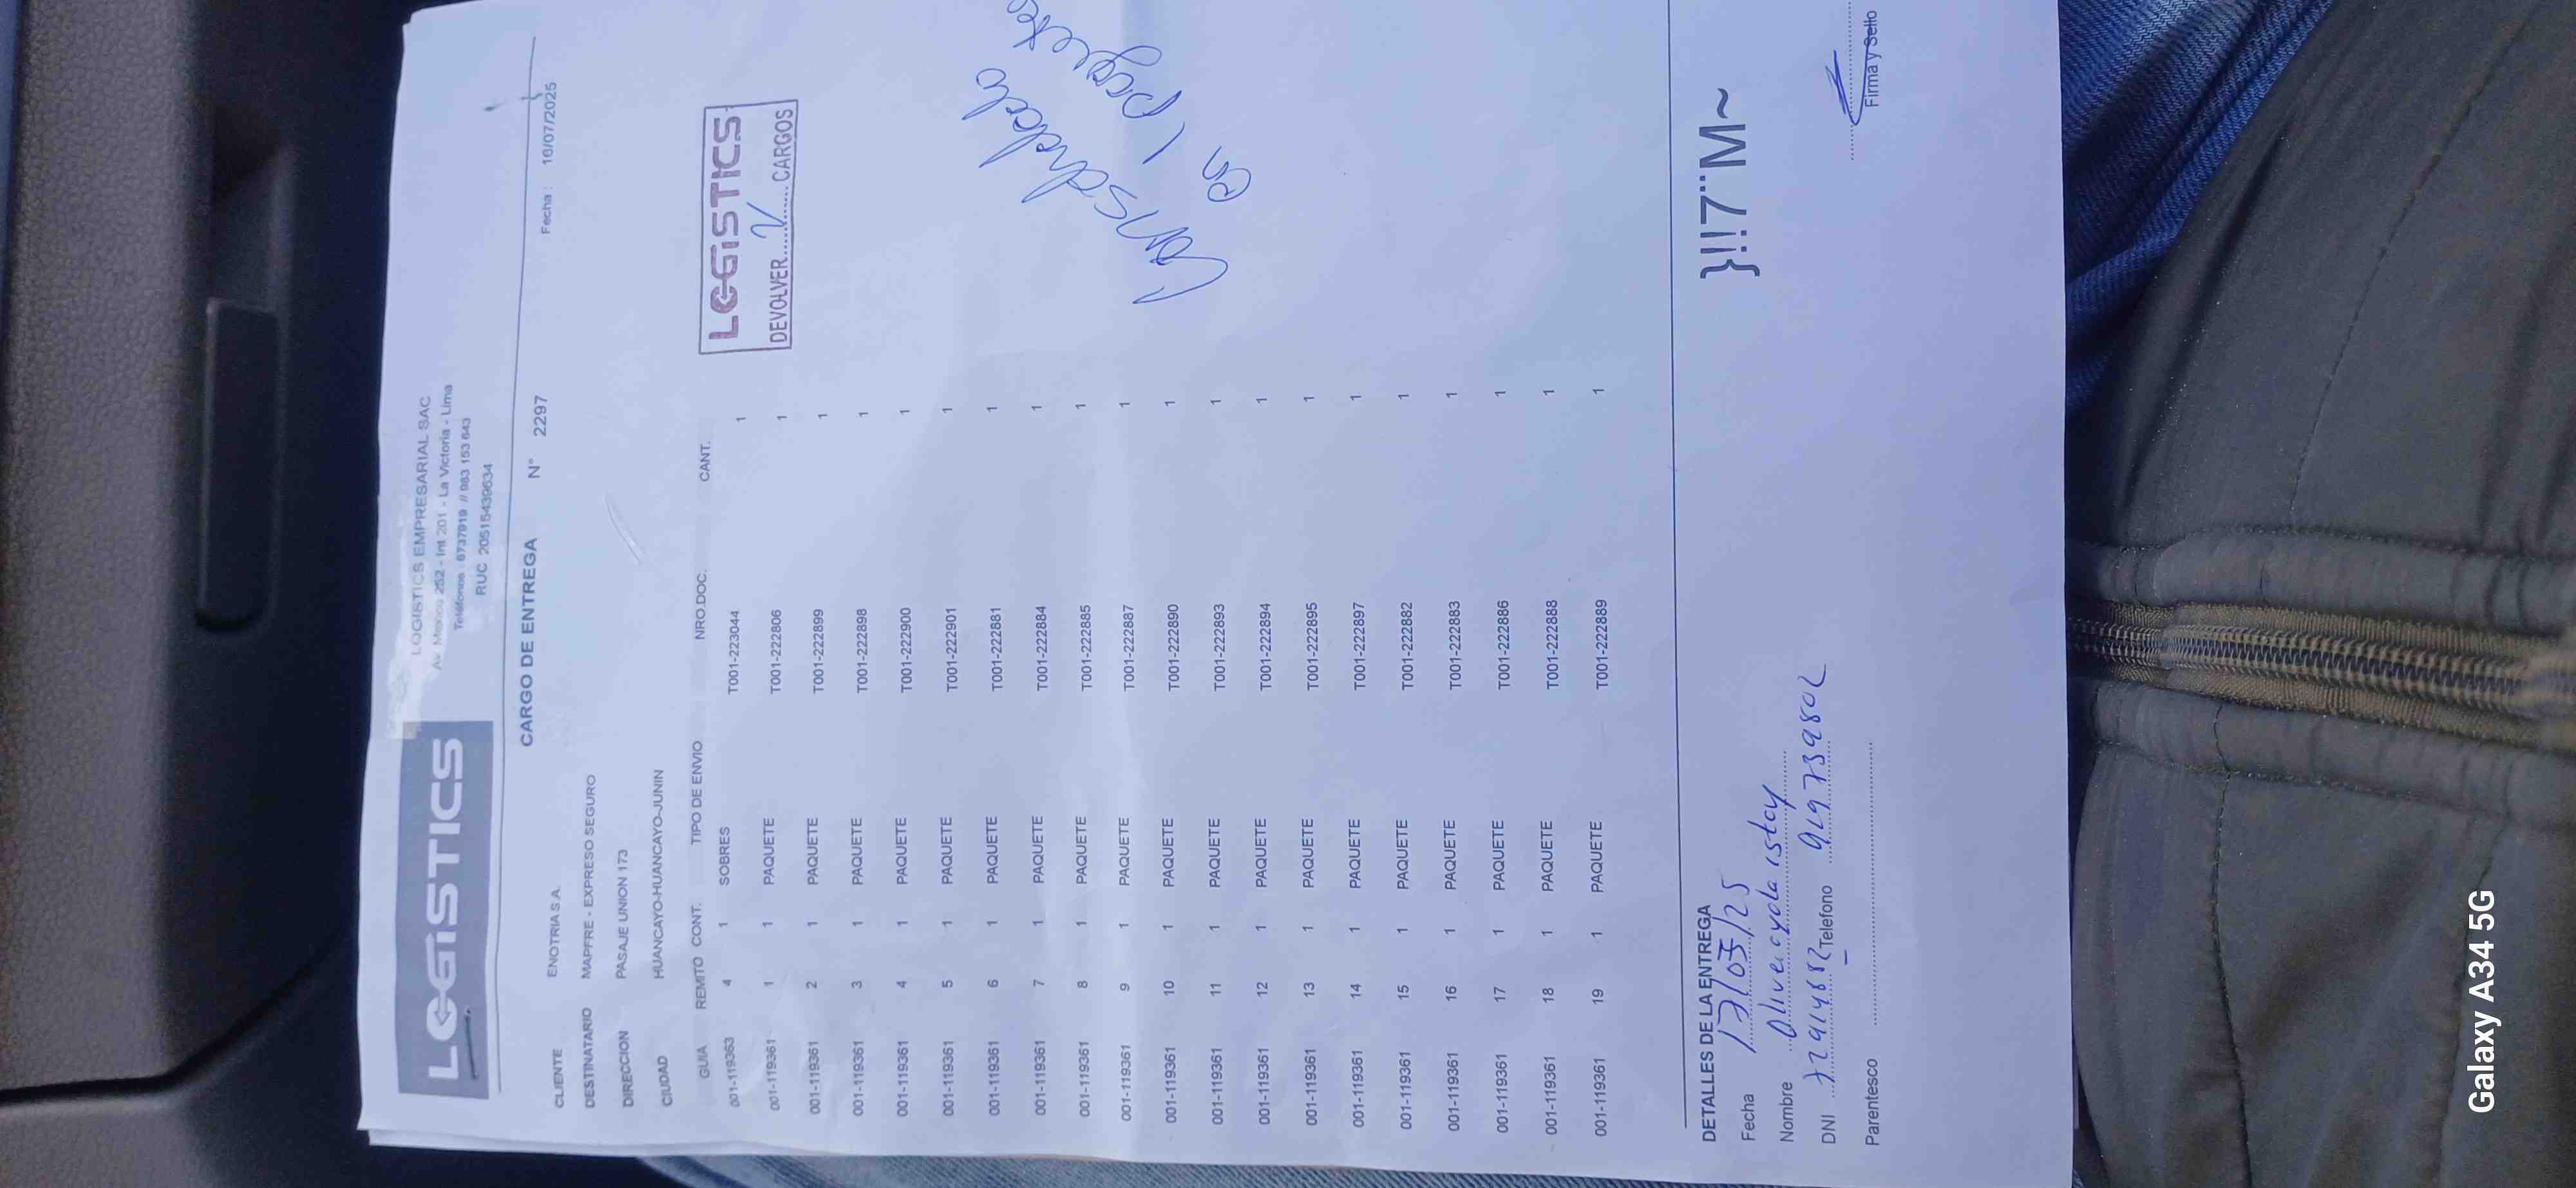 LOGISTICS
LOGISTICS EMPRESARIAL SAC
Av. Mexico 252 - Int 201 - La Victoria - Lima
Teléfonos : 6737919 // 983 153 643
RUC 20515439634
CARGO DE ENTREGA N° 2297 Fecha : 16/07/2025
CLIENTE ENOTRIA S.A.
DESTINATARIO MAPFRE - EXPRESO SEGURO
DIRECCION PASAJE UNION 173
CIUDAD HUANCAYO-HUANCAYO-JUNIN
LOGISTICS
DEVOLVER...V...CARGOS
GUIA REMITO CONT. TIPO DE ENVIO NRO.DOC. CANT.
001-119363 4 1 SOBRES T001-223044 1
001-119361 1 1 PAQUETE T001-222806 1
001-119361 2 1 PAQUETE T001-222899 1
001-119361 3 1 PAQUETE T001-222898 1
001-119361 4 1 PAQUETE T001-222900 1
001-119361 5 1 PAQUETE T001-222901 1
001-119361 6 1 PAQUETE T001-222881 1
001-119361 7 1 PAQUETE T001-222884 1
001-119361 8 1 PAQUETE T001-222885 1
001-119361 9 1 PAQUETE T001-222887 1
001-119361 10 1 PAQUETE T001-222890 1
001-119361 11 1 PAQUETE T001-222893 1
001-119361 12 1 PAQUETE T001-222894 1
001-119361 13 1 PAQUETE T001-222895 1
001-119361 14 1 PAQUETE T001-222897 1
001-119361 15 1 PAQUETE T001-222882 1
001-119361 16 1 PAQUETE T001-222883 1
001-119361 17 1 PAQUETE T001-222886 1
001-119361 18 1 PAQUETE T001-222888 1
001-119361 19 1 PAQUETE T001-222889 1
en 1
DETALLES DE LA ENTREGA
}!!7¨M~
Fecha
Nombre
DNI Telefono 919739802
Parentesco
Firma y Sello
Galaxy A34 5G